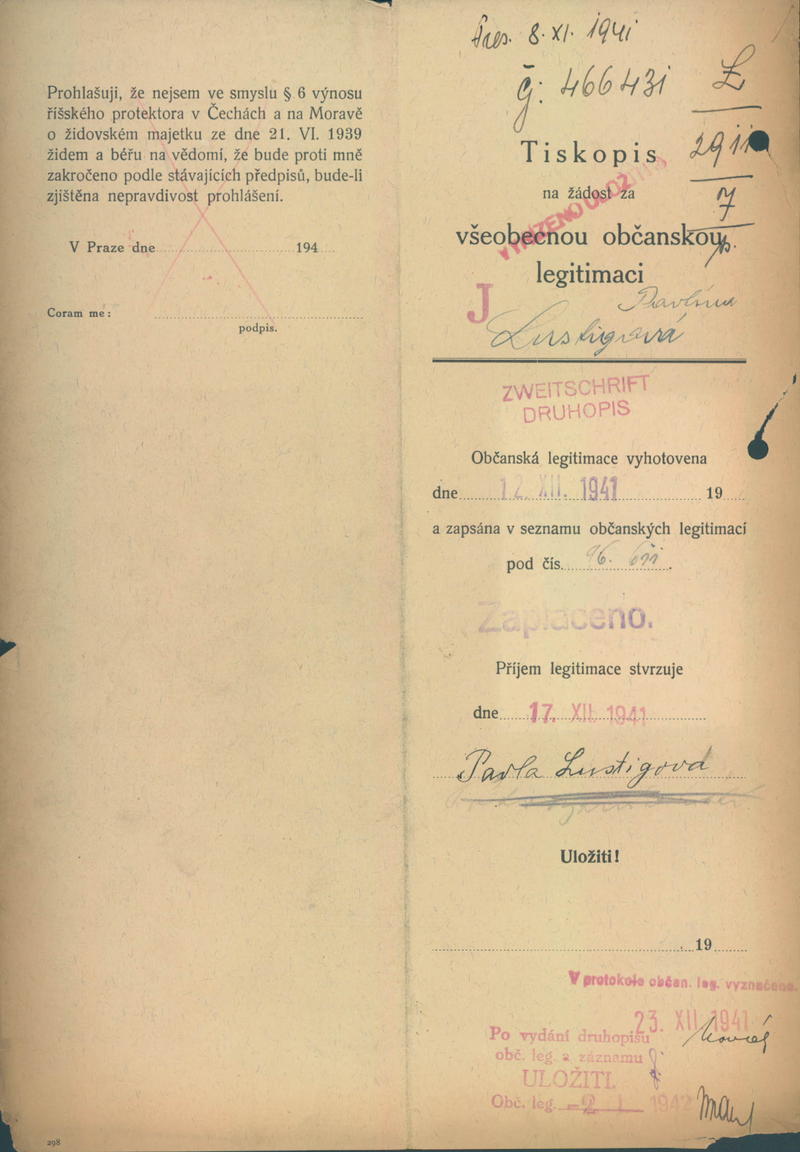 Prohlašuji, že nejsem ve smyslu § 6 výnosu
říšského protektora v Čechách a na Moravě
o židovském majetku ze dne 21. VI. 1939
židem a béřu na vědomí, že bude proti mně
zakročeno podle stávajících předpisů, bude-li
zjištěna nepravdivost prohlášení.
V Praze dne 194
Coram me:
podpis.
298
8. XI. 1941
Č: 466431
Ž
Tiskopis
29
na žádost za
7
všeobecnou občanskou
legitimaci
J
Pavlína
Lustigová
ZWEITSCHRIFT
DRUHOPIS
Občanská legitimace vyhotovena
dne 12. XII. 1941 19
a zapsána v seznamu občanských legitimací
pod čís.
Zaplaceno.
Příjem legitimace stvrzuje
dne 17. XII. 1941
Pavla Lustigová
Uložiti!
19
V protokole občan. leg. vyznačeno.
23. XII. 1941
Po vydání druhopisu
obč. leg. a záznamu
ULOŽITI.
Obč. leg. -2. I. 1942